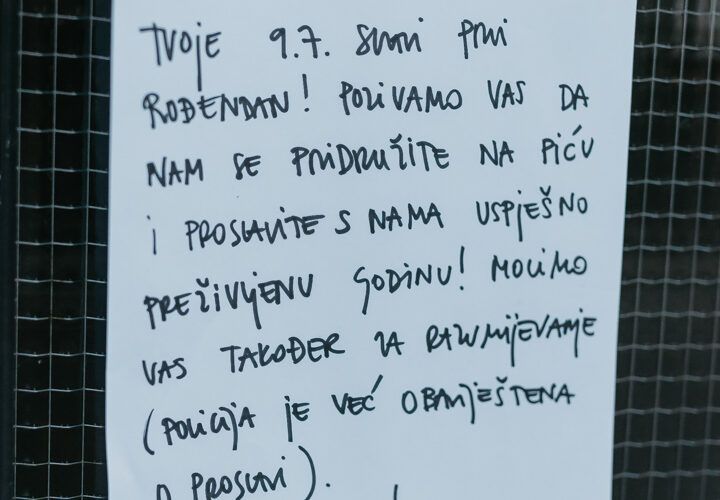 TVOJE 9.7. SVOJ PRVI
ROĐENDAN! POZIVAMO VAS DA
NAM SE PRIDRUŽITE NA PIĆU
I PROSLAVITE S NAMA USPJEŠNO
PREŽIVLJENU GODINU! MOLIMO
VAS TAKOĐER ZA RAZUMIJEVANJE
(POLICIJA JE VEĆ OBAVJEŠTENA
O PROSLAVI).